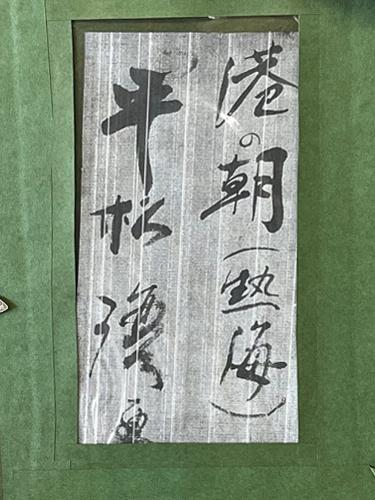 港の朝(熱海)
平松譲